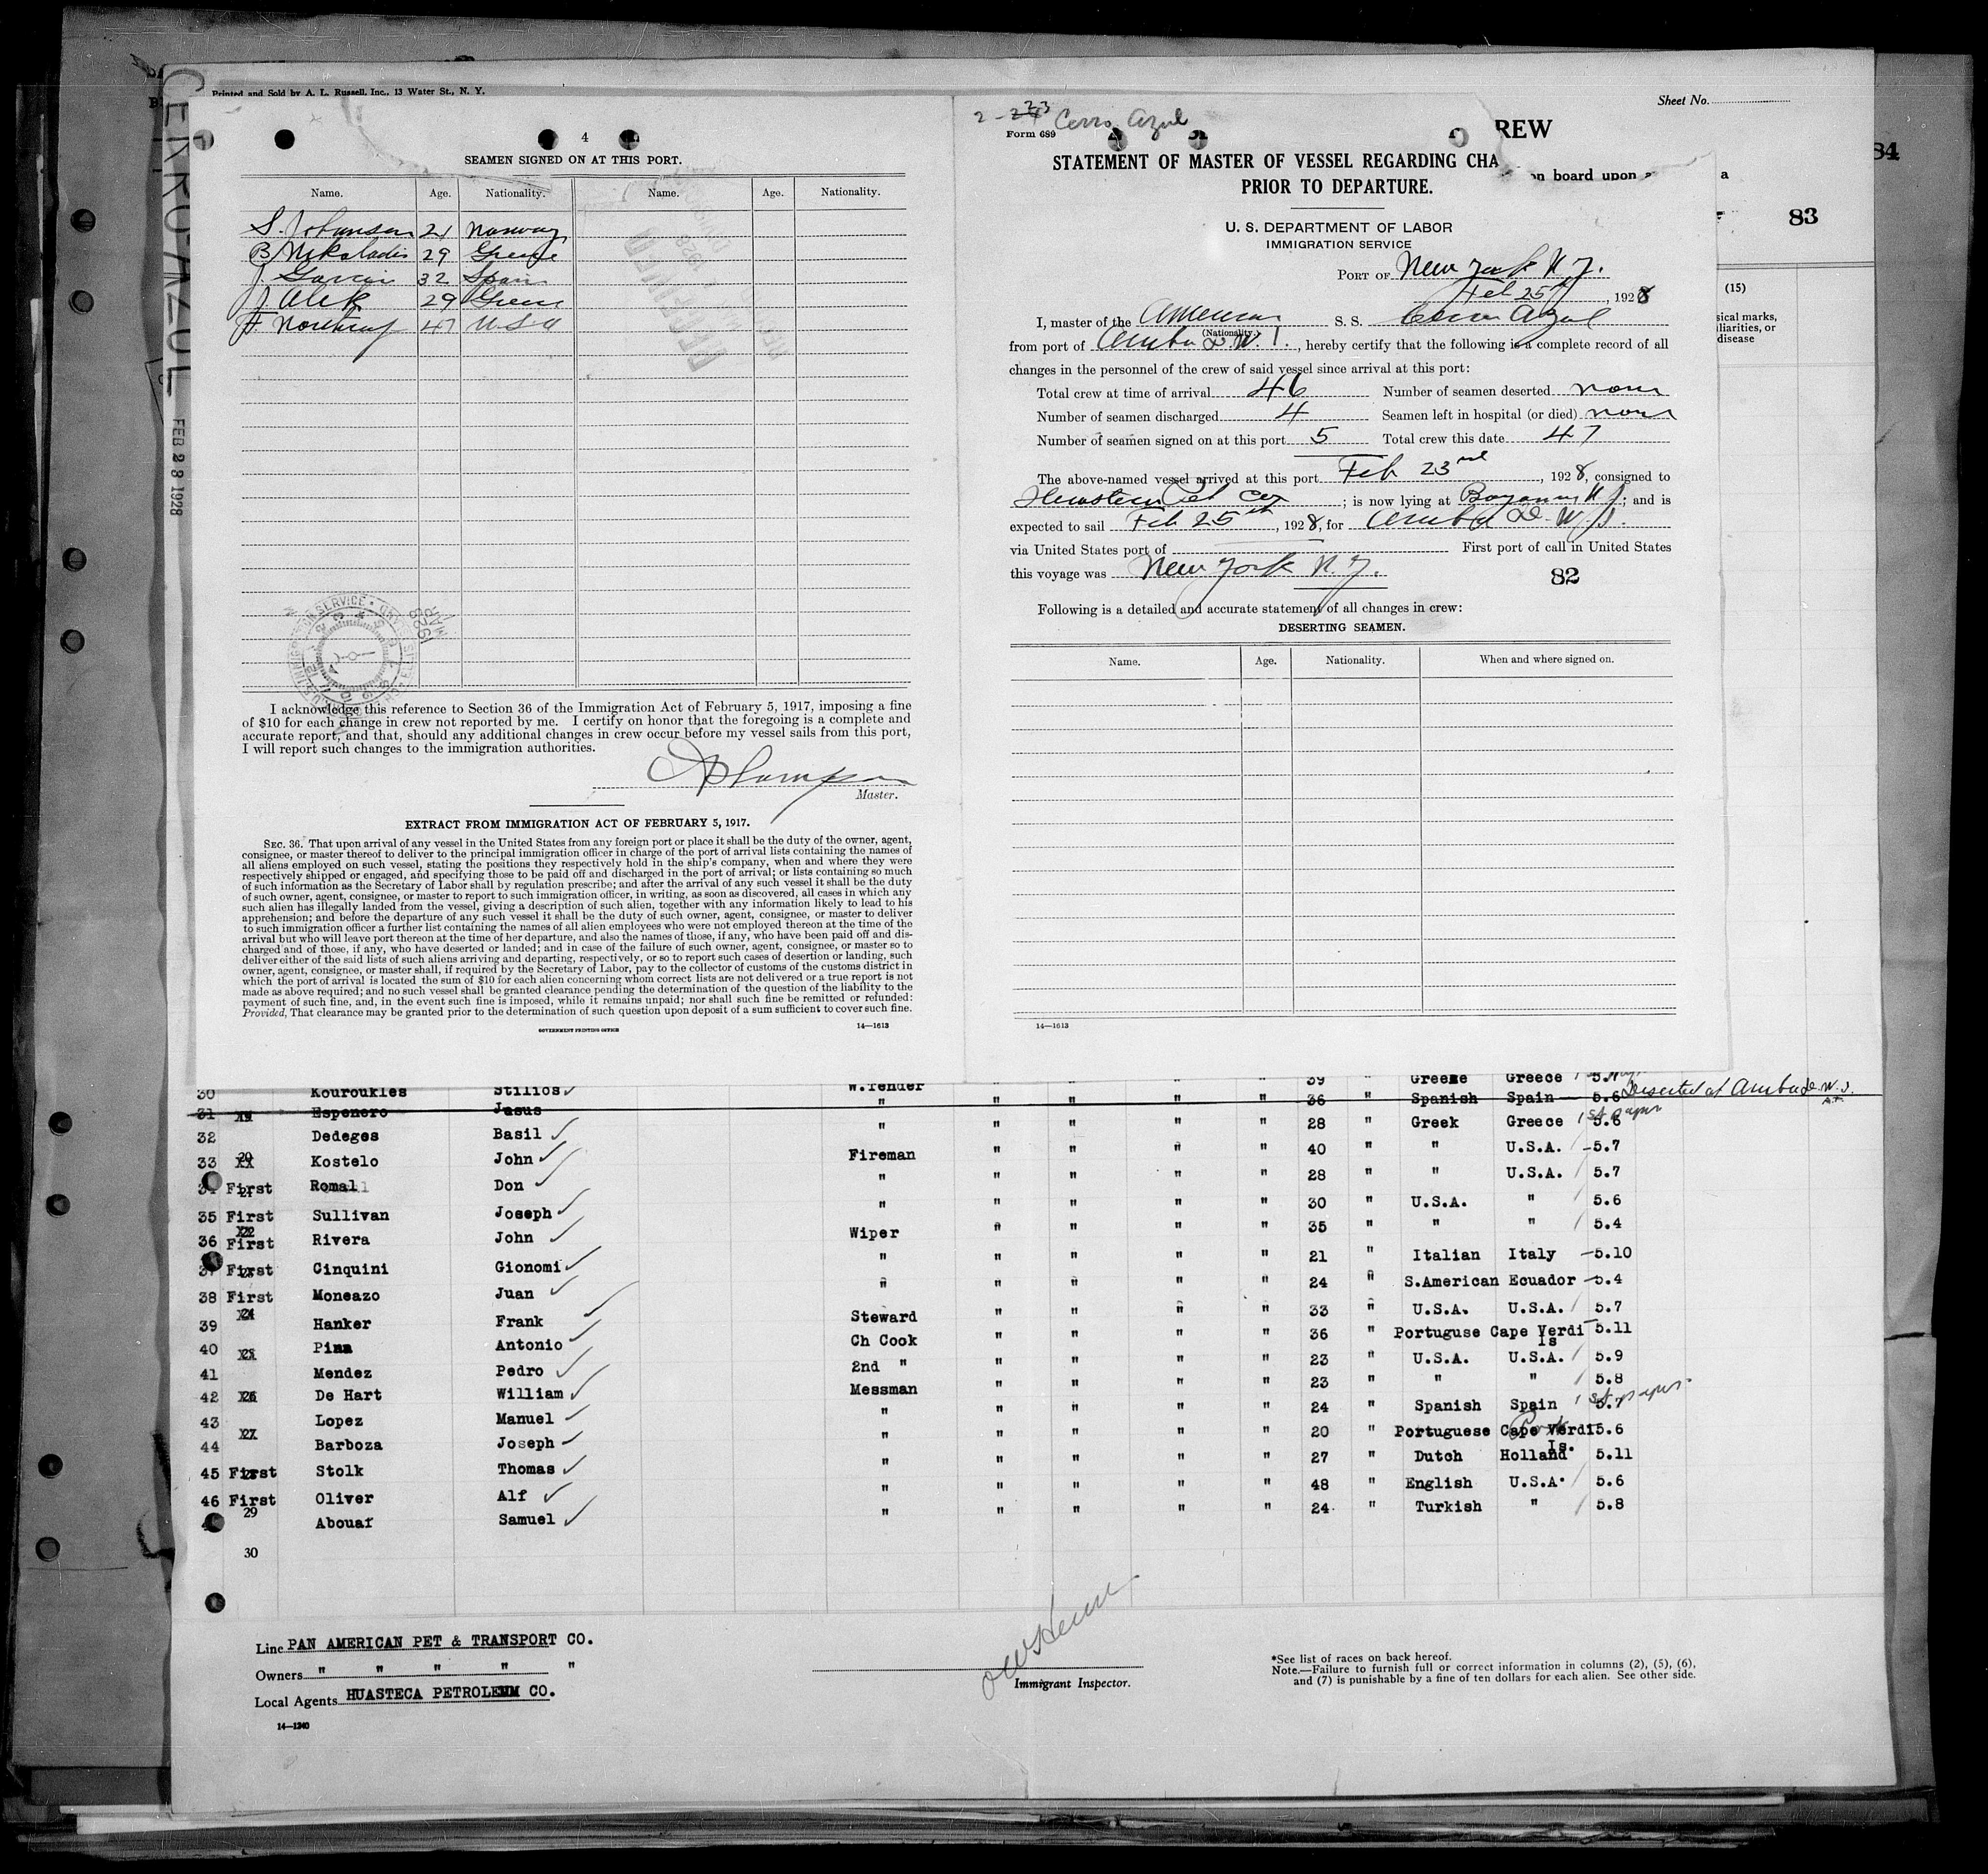 Printed and Sold by A. L. Russell, Inc., 13 Water St., N. Y.
Sheet No.
CERRO AZUL FEB 23 1928
4
SEAMEN SIGNED ON AT THIS PORT.
Name. Age. Nationality. Name. Age. Nationality.
S. Johansen 21 Norway
B. Nikoladis 29 Greece
J. Garcia 32 Spain
J. Alek 29 Greece
F. Northrup 47 U.S.A
I acknowledge this reference to Section 36 of the Immigration Act of February 5, 1917, imposing a fine
of $10 for each change in crew not reported by me. I certify on honor that the foregoing is a complete and
accurate report, and that, should any additional changes in crew occur before my vessel sails from this port,
I will report such changes to the immigration authorities.
Master.
EXTRACT FROM IMMIGRATION ACT OF FEBRUARY 5, 1917.
SEC. 36. That upon arrival of any vessel in the United States from any foreign port or place it shall be the duty of the owner, agent,
consignee, or master thereof to deliver to the principal immigration officer in charge of the port of arrival lists containing the names of
all aliens employed on such vessel, stating the positions they respectively hold in the ship's company, when and where they were
respectively shipped or engaged, and specifying those to be paid off and discharged in the port of arrival; or lists containing so much
of such information as the Secretary of Labor shall by regulation prescribe; and after the arrival of any such vessel it shall be the duty
of such owner, agent, consignee, or master to report to such immigration officer, in writing, as soon as discovered, all cases in which any
such alien has illegally landed from the vessel, giving a description of such alien, together with any information likely to lead to his
apprehension; and before the departure of any such vessel it shall be the duty of such owner, agent, consignee, or master to deliver
to such immigration officer a further list containing the names of all alien employees who were not employed thereon at the time of the
arrival but who will leave port thereon at the time of her departure, and also the names of those, if any, who have been paid off and dis-
charged and of those, if any, who have deserted or landed; and in case of the failure of such owner, agent, consignee, or master so to
deliver either of the said lists of such aliens arriving and departing, respectively, or so to report such cases of desertion or landing, such
owner, agent, consignee, or master shall, if required by the Secretary of Labor, pay to the collector of customs of the customs district in
which the port of arrival is located the sum of $10 for each alien concerning whom correct lists are not delivered or a true report is not
made as above required; and no such vessel shall be granted clearance pending the determination of the question of the liability to the
payment of such fine, and, in the event such fine is imposed, while it remains unpaid; nor shall such fine be remitted or refunded:
Provided, That clearance may be granted prior to the determination of such question upon deposit of a sum sufficient to cover such fine.
GOVERNMENT PRINTING OFFICE 14—1613
2-223 Cerro Azul
Form 689
REW
STATEMENT OF MASTER OF VESSEL REGARDING CHA
PRIOR TO DEPARTURE.
on board upon a
84
83
U. S. DEPARTMENT OF LABOR
IMMIGRATION SERVICE
PORT OF New York N.Y.
Feb 25th, 1928
I, master of the American S. S. Cerro Azul
(Nationality.)
from port of Aruba D.W.I., hereby certify that the following is a complete record of all
changes in the personnel of the crew of said vessel since arrival at this port:
Total crew at time of arrival 46 Number of seamen deserted none
Number of seamen discharged 4 Seamen left in hospital (or died) none
Number of seamen signed on at this port 5 Total crew this date 47
The above-named vessel arrived at this port Feb 23rd, 1928, consigned to
Huasteca Pet Co; is now lying at Bayonne N.J; and is
expected to sail Feb 25th, 1928, for Aruba D.W.I.
via United States port of First port of call in United States
this voyage was New York N.Y.
82
Following is a detailed and accurate statement of all changes in crew:
DESERTING SEAMEN.
Name. Age. Nationality. When and where signed on.
14—1613
(15)
sical marks,
liarities, or
disease
30 Kouroukles Stilios W.Tender " " " " 39 " Greece 5.
31 Espenero Jasus " " " " " 36 " Spanish Spain 5.6 Deserted at Aruba D.W.I.
32 Dedeges Basil " " " " " 28 " Greek Greece 1st paper 5.6
33 20 Kostelo John Fireman " " " " 40 " " U.S.A. 5.7
34 First 21 Romall Don " " " " " 28 " " U.S.A. 5.7
35 First Sullivan Joseph " " " " " 30 " U.S.A. " 5.6
36 22 First Rivera John Wiper " " " " 35 " " " 5.4
37 First Cinquini Gionomi " " " " " 21 " Italian Italy 5.10
38 First Moneazo Juan " " " " " 24 " S.American Ecuador 5.4
39 24 Hanker Frank Steward " " " " 33 " U.S.A. U.S.A. 5.7
40 Pina Antonio Ch Cook " " " " 36 " Portuguse Cape Verdi Is 5.11
41 25 Mendez Pedro 2nd " " " " " 23 " U.S.A. U.S.A. 5.9
42 26 De Hart William Messman " " " " 23 " " " 5.8
43 Lopez Manuel " " " " " 24 " Spanish Spain 1st paper 5.7
44 27 Barboza Joseph " " " " " 20 " Portuguese Cape Verdi Is. 5.6
45 First Stolk Thomas " " " " " 27 " Dutch Holland 5.11
46 First Oliver Alf " " " " " 48 " English U.S.A. 5.6
29 Abouaf Samuel " " " " " 24 " Turkish " 5.8
30
Line PAN AMERICAN PET & TRANSPORT CO.
Owners " " " " "
Local Agents HUASTECA PETROLEUM CO.
14—1240
Immigrant Inspector.
*See list of races on back hereof.
Note.—Failure to furnish full or correct information in columns (2), (5), (6),
and (7) is punishable by a fine of ten dollars for each alien. See other side.